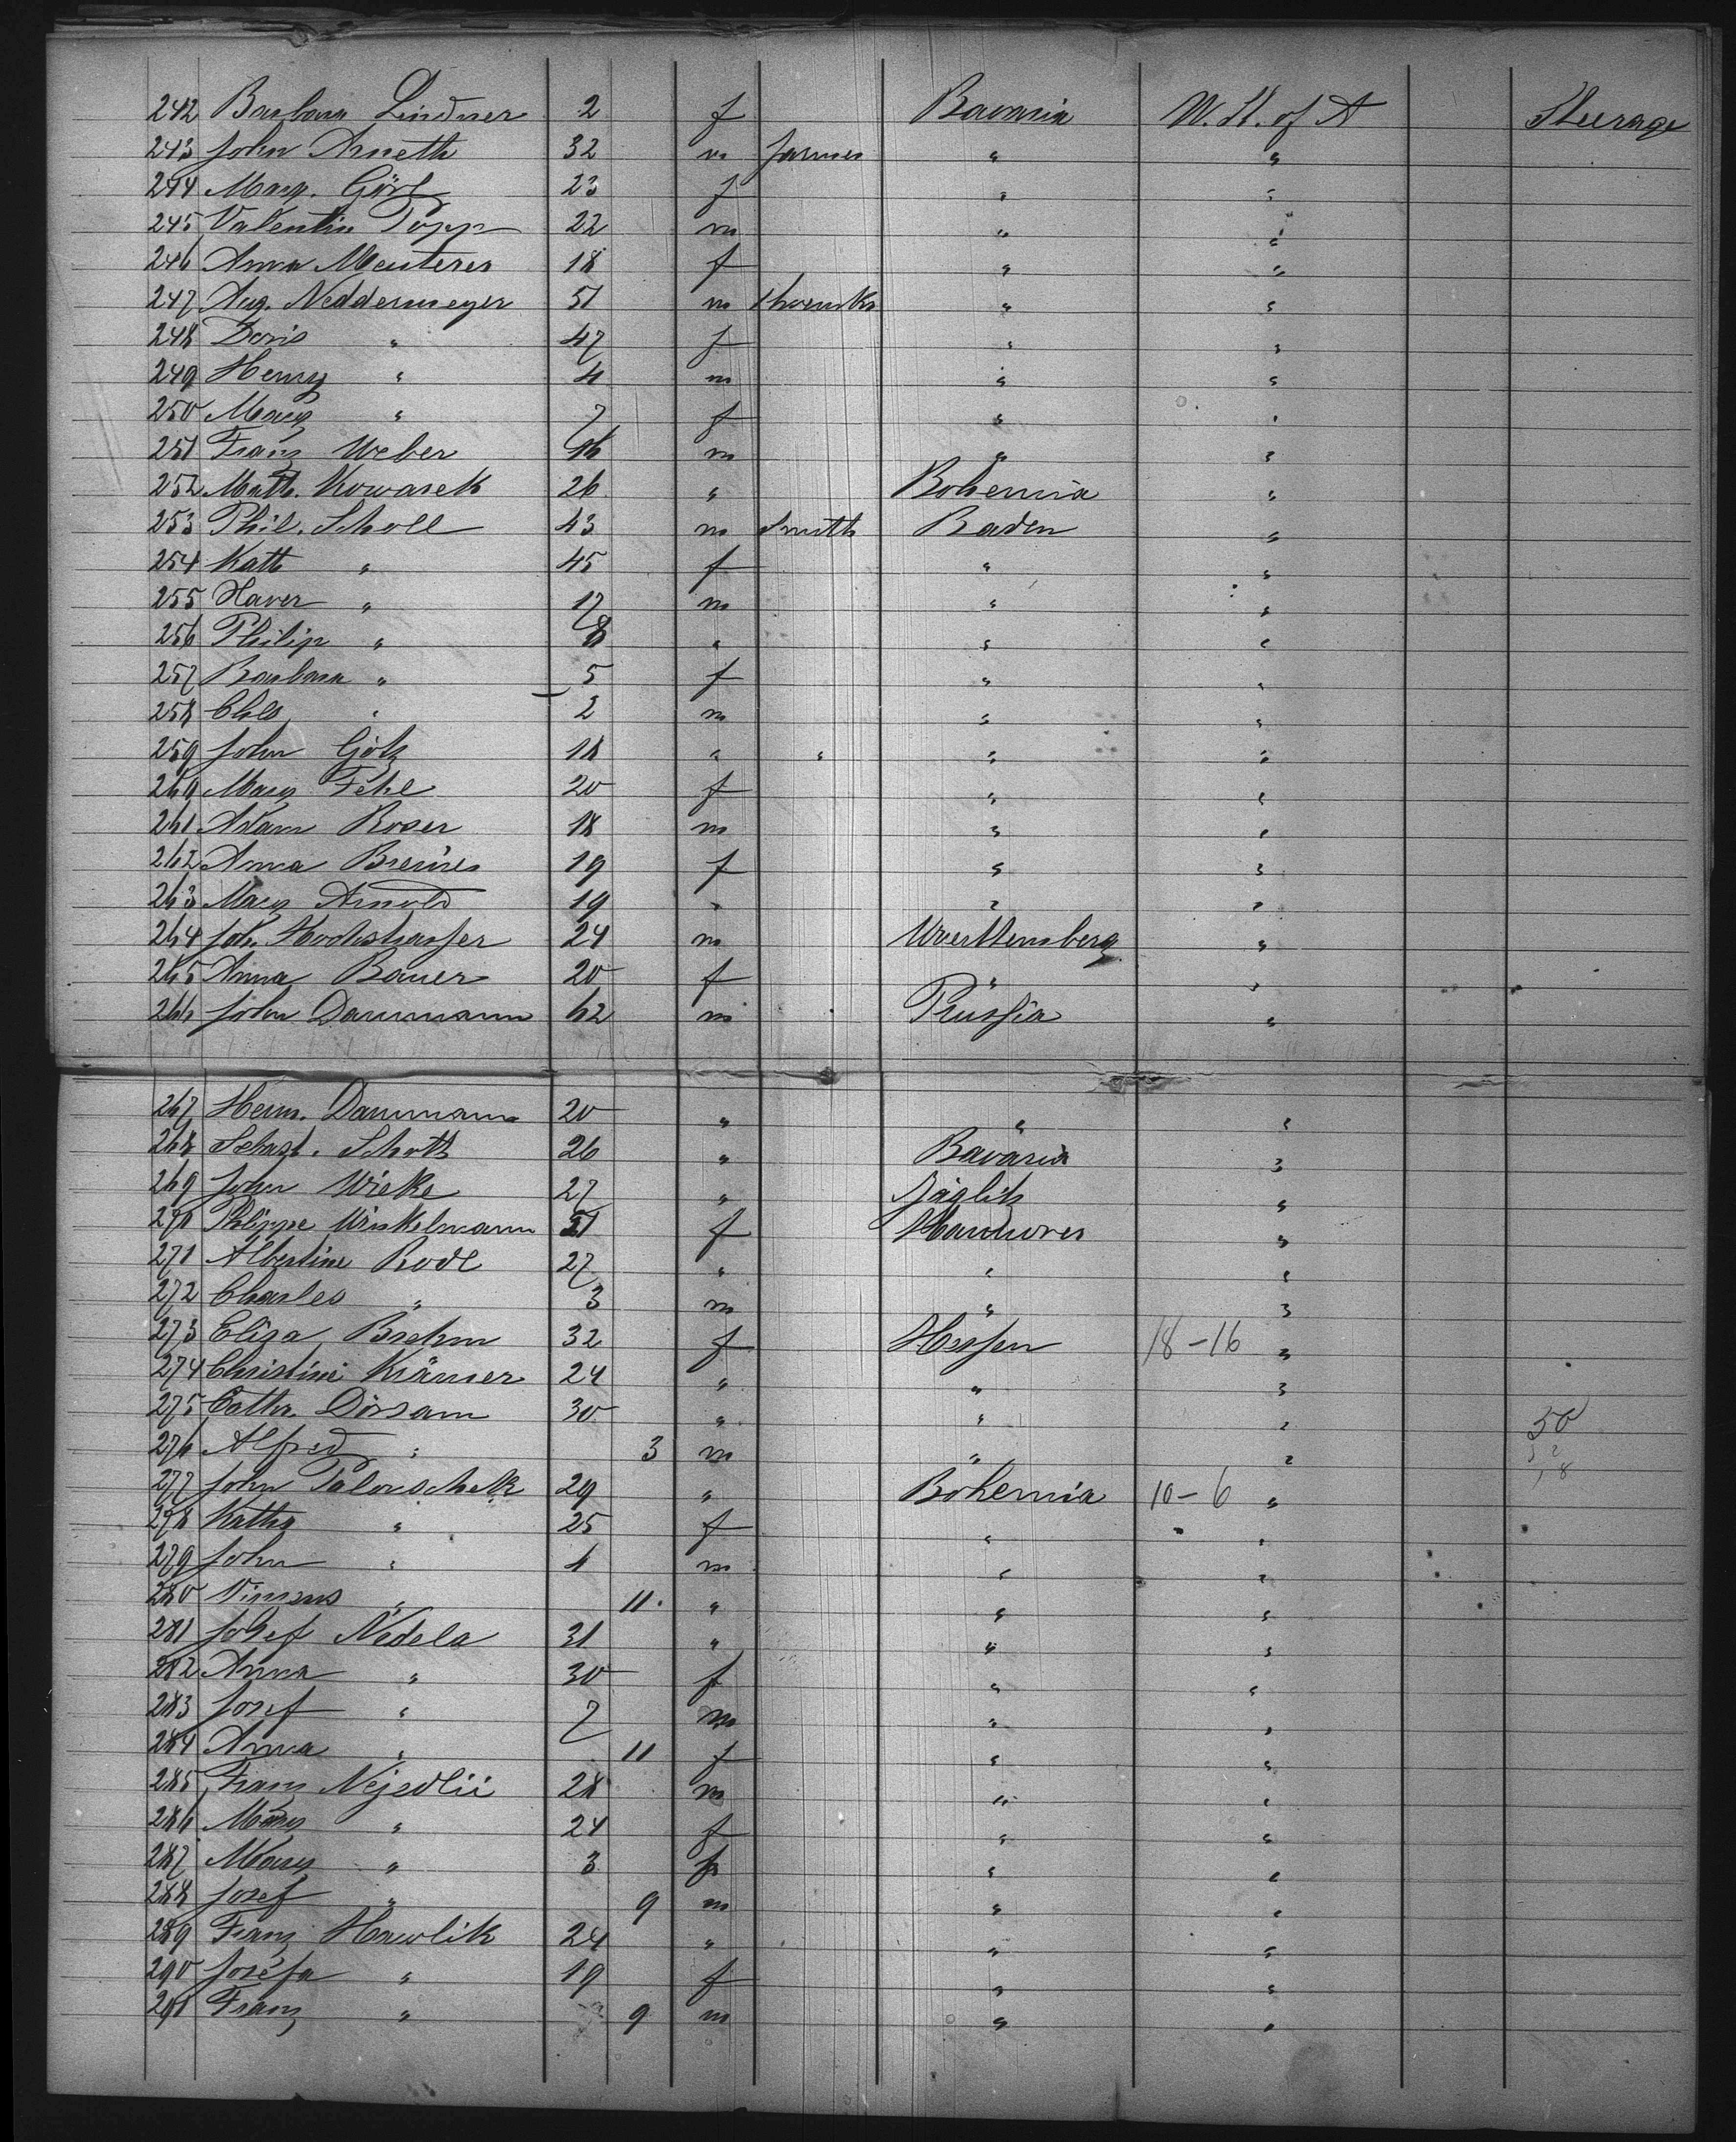 242 Barbara Lindner 2 f Bavaria U. St. of A Steerage
243 John Arneth 32 m farmer " "
244 Marg. Görl 23 f " "
245 Valentin Popp 22 m " "
246 Anna Meisterer 18 f " "
247 Aug. Neddermeyer 51 m " "
248 Doris " 47 f " "
249 Henry " 4 m " "
250 Mary " 7 f " "
251 Franz Weber 16 m " "
252 Math. Kowarek 26 " Bohemia "
253 Phil. Scholl 43 m Smith Baden "
254 Kath " 45 f " "
255 Xaver " 17 m " "
256 Philip " 8 " " "
257 Barbara " 5 f " "
258 Chls " 2 m " "
259 John Götz 18 " " " "
260 Mary Fehl 20 f " "
261 Adam Roser 18 m " "
262 Anna Breiner 19 f " "
263 Mary Arnold 19 " " "
264 Joh. Hochstrasser 24 m Wuerttemberg "
265 Anna Bauer 20 f " "
266 John Dammann 62 m Prussia "
267 Herm. Dammann 20 " " "
268 Sebast. Schott 26 " Bavaria "
269 John Wieke 27 " Jäglitz "
270 Philippe Winkelmann 21 f Hannover "
271 Albertine Rode 27 " " "
272 Charles " 3 m " "
273 Elisa Brehm 32 f Hessen 18-16 "
274 Christine Krämer 24 " " "
275 Cathr. Dörsam 30 " " " 50
276 Alfred " 3 m " "
277 John Palouschek 29 " Bohemia 10-6 "
278 Katha " 25 f " "
279 John " 4 m " "
280 " 11 " " "
281 Josef Nedela 31 " " "
282 Anna " 30 f " "
283 Josef " 7 m " "
284 Anna " 11 f " "
285 Franz Nejedlii 28 m " "
286 Mary " 24 f " "
287 Mary " 3 f " "
288 Josef " 9 m " "
289 Franz Hawlik 24 " " "
290 Josefa " 19 f " "
291 Franz " 9 m " "